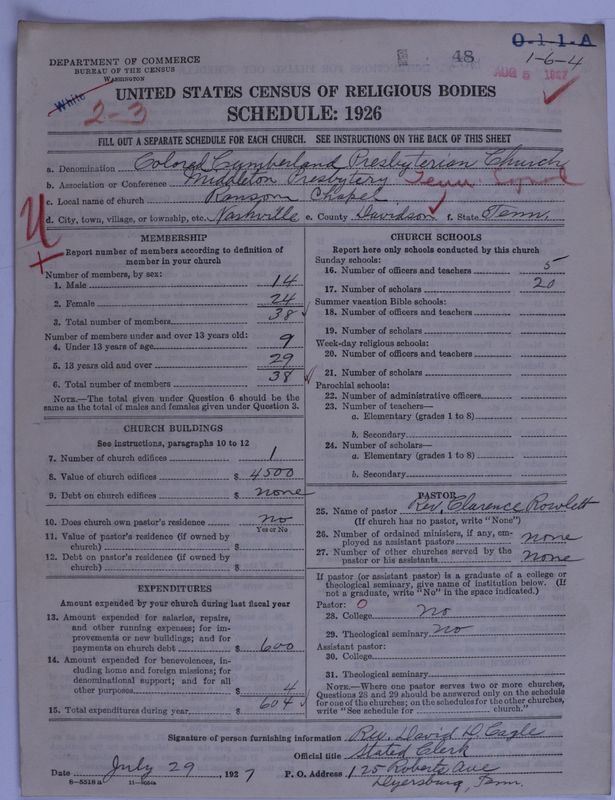 0-1-1-A
48
1-6-4
AUG 5 1927
DEPARTMENT OF COMMERCE
BUREAU OF THE CENSUS
WASHINGTON
White
2-3
UNITED STATES CENSUS OF RELIGIOUS BODIES
SCHEDULE: 1926
FILL OUT A SEPARATE SCHEDULE FOR EACH CHURCH. SEE INSTRUCTIONS ON THE BACK OF THIS SHEET
a. Denomination Colored Cumberland Presbyterian Church
b. Association or Conference Middleton Presbytery Tenn. Synod
c. Local name of church Ransom Chapel
d. City, town, village, or township, etc. Nashville e. County Davidson f. State Tenn.
MEMBERSHIP
Report number of members according to definition of
member in your church
Number of members, by sex:
1. Male 14
2. Female 24
3. Total number of members 38
Number of members under and over 13 years old:
4. Under 13 years of age 9
5. 13 years old and over 29
6. Total number of members 38
NOTE.—The total given under Question 6 should be
same as the total of males and females given under Question 3.
CHURCH BUILDINGS
See instructions, paragraphs 10 to 12
7. Number of church edifices 1
8. Value of church edifices $ 4500
9. Debt on church edifices $ none
10. Does church own pastor's residence no
Yes or No
11. Value of pastor's residence (if owned by
church) $
12. Debt on pastor's residence (if owned by
church) $
EXPENDITURES
Amount expended by your church during last fiscal year
13. Amount expended for salaries, repairs,
and other running expenses; for im-
provements or new buildings; and for
payments on church debt $ 600
14. Amount expended for benevolences, in-
cluding home and foreign missions; for
denominational support; and for all
other purposes $ 4
15. Total expenditures during year $ 604
CHURCH SCHOOLS
Report here only schools conducted by this church
Sunday schools:
16. Number of officers and teachers 5
17. Number of scholars 20
Summer vacation Bible schools:
18. Number of officers and teachers
19. Number of scholars
Week-day religious schools:
20. Number of officers and teachers
21. Number of scholars
Parochial schools:
22. Number of administrative officers
23. Number of teachers—
a. Elementary (grades 1 to 8)
b. Secondary
24. Number of scholars—
a. Elementary (grades 1 to 8)
b. Secondary
PASTOR
25. Name of pastor Rev. Clarence Rowlett
(If church has no pastor, write "None")
26. Number of ordained ministers, if any, em-
ployed as assistant pastors none
27. Number of other churches served by the
pastor or his assistants none
If pastor (or assistant pastor) is a graduate of a college or
theological seminary, give name of institution below. (If
not a graduate, write "No" in the space indicated.)
Pastor: 0
28. College No
29. Theological seminary No
Assistant pastor:
30. College
31. Theological seminary
NOTE.—Where one pastor serves two or more churches,
Questions 28 and 29 should be answered only on the schedule
for one of the churches; on the schedules for the other churches,
write "See schedule for church."
Signature of person furnishing information Rev. David D. Cagle
Official title Stated Clerk
Date July 29, 1927 P. O. Address 125 Roberts Ave
8-5518a
Dyersburg, Tenn.